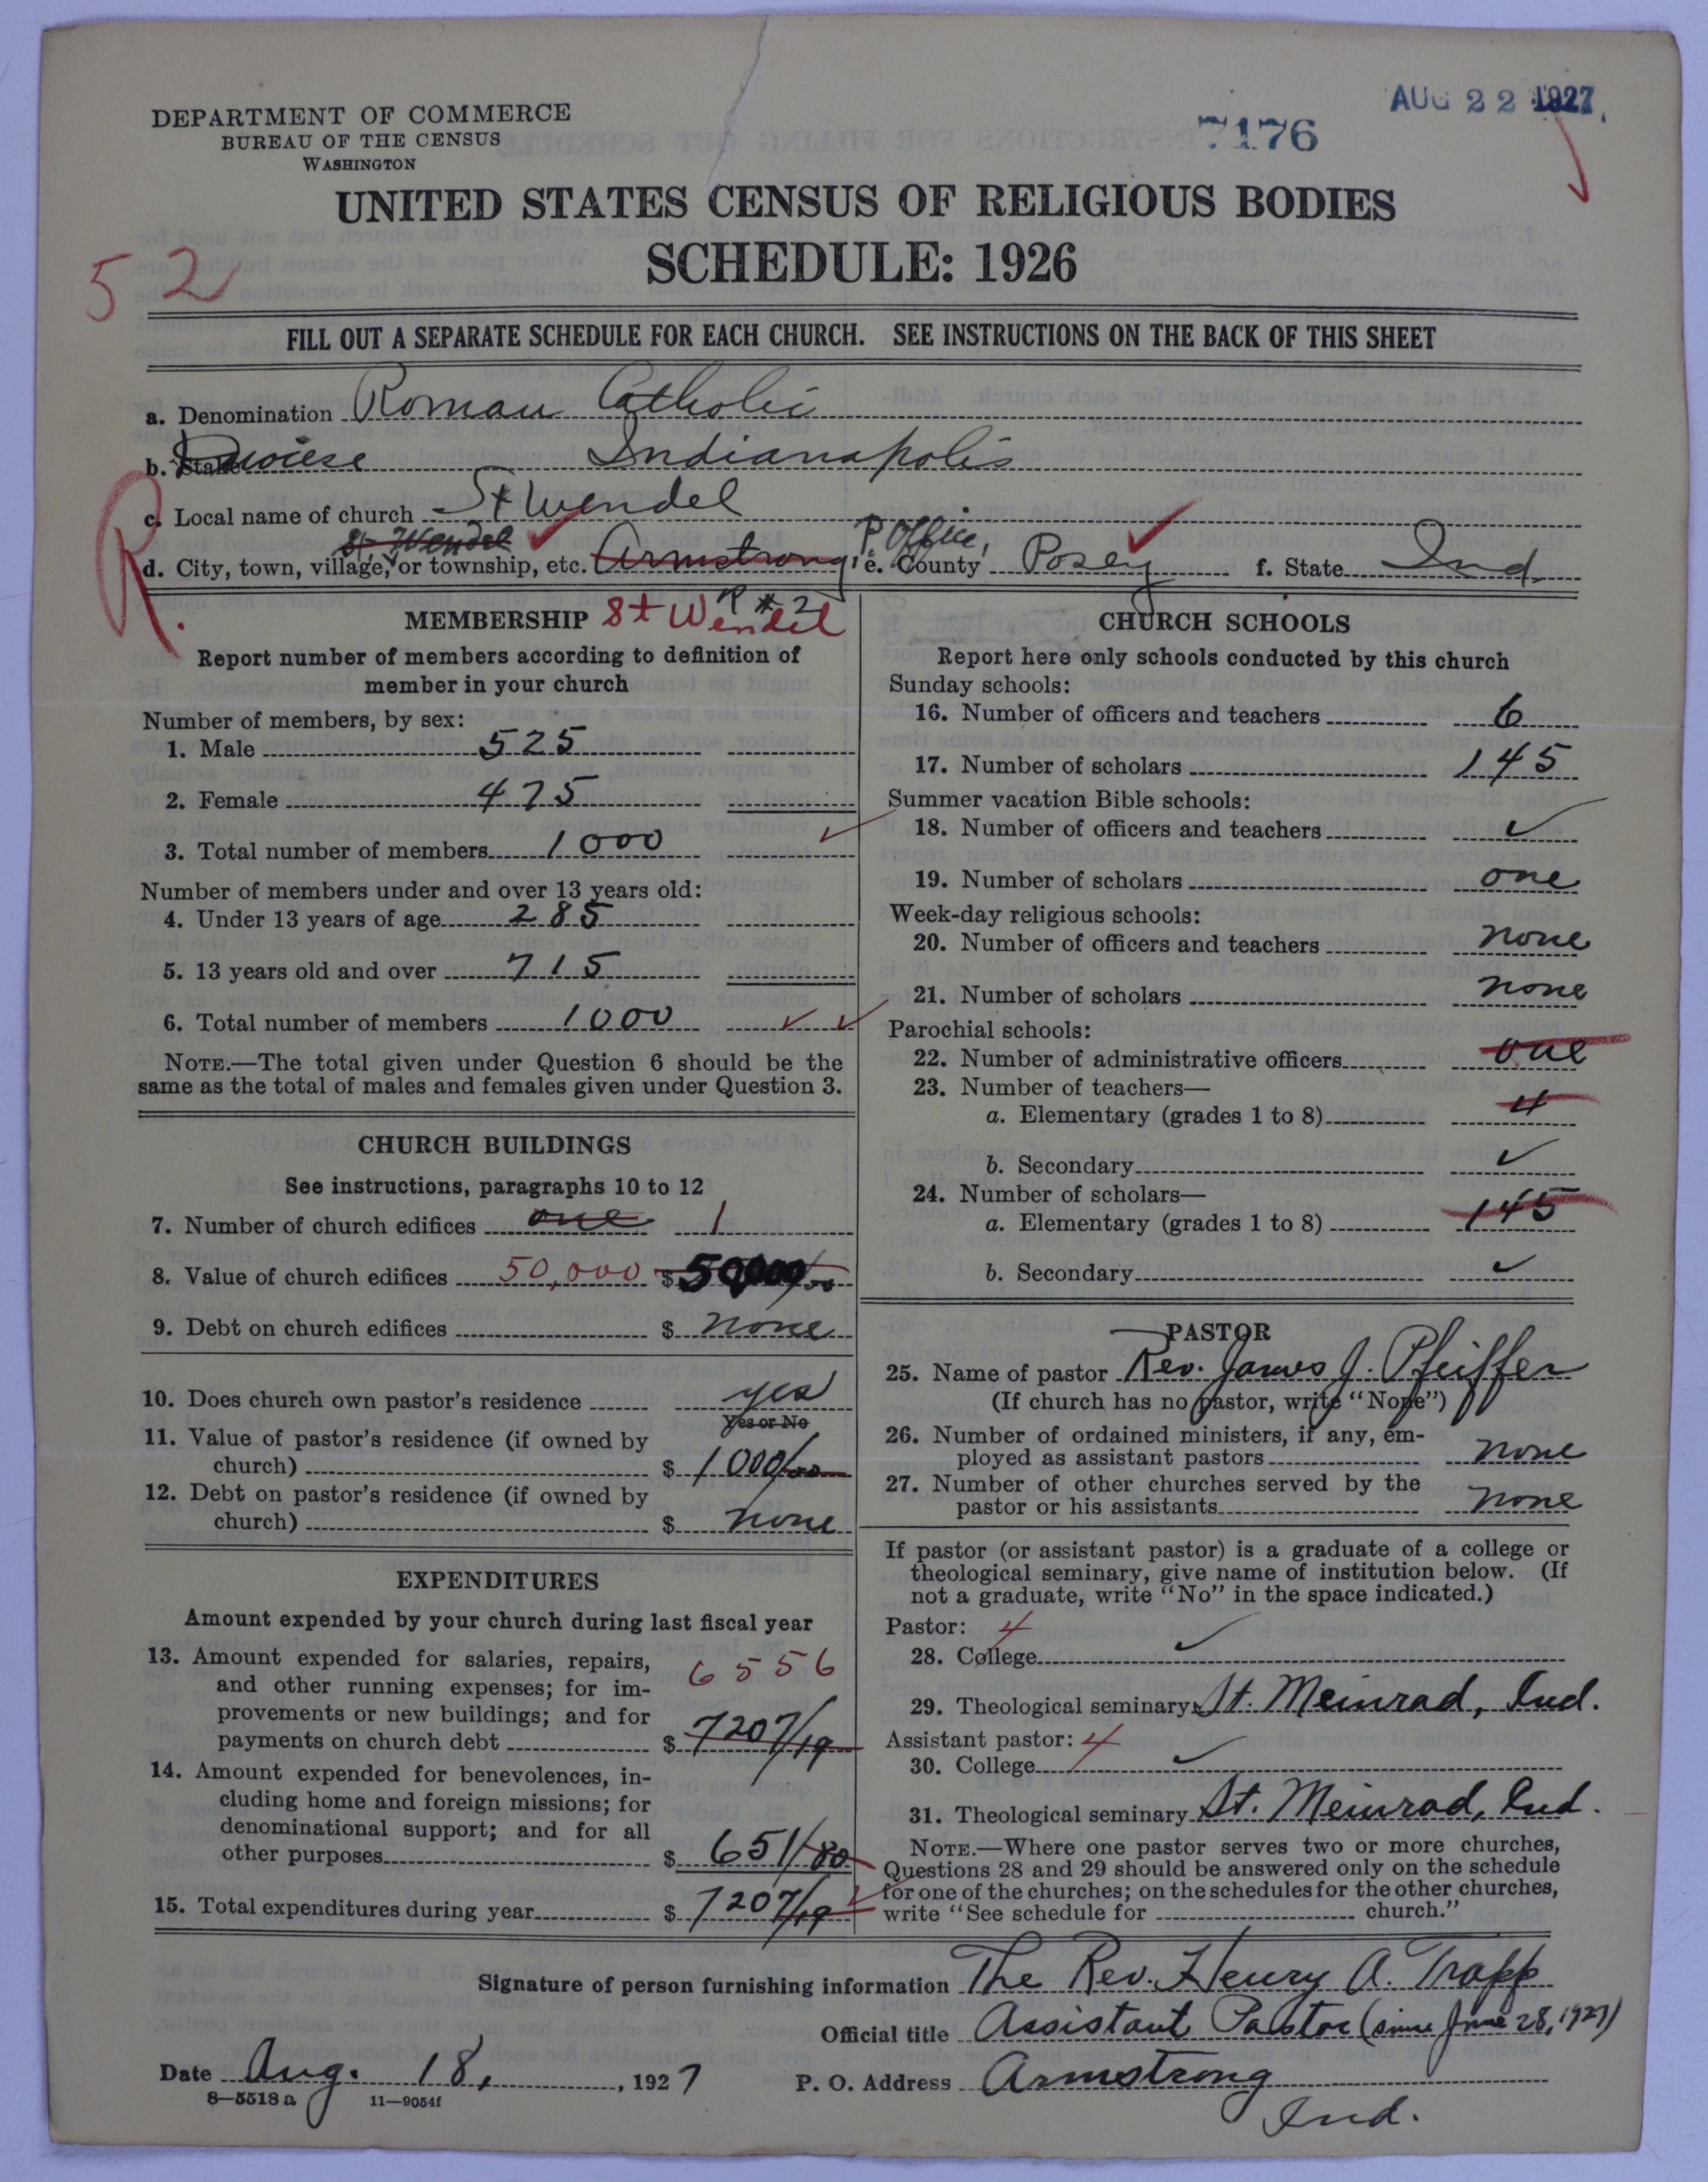 AUG 22 1927
7176
DEPARTMENT OF COMMERCE
BUREAU OF THE CENSUS
WASHINGTON
UNITED STATES CENSUS OF RELIGIOUS BODIES
SCHEDULE: 1926
52
FILL OUT A SEPARATE SCHEDULE FOR EACH CHURCH. SEE INSTRUCTIONS ON THE BACK OF THIS SHEET
a. Denomination Roman Catholic
b. State Diocese Indianapolis
R.
c. Local name of church St Wendel
St. Wendel
d. City, town, village, or township, etc. Armstrong, P. Office, e. County Posey f. State Ind.
R #2
MEMBERSHIP St Wendel
Report number of members according to definition of
member in your church
Number of members, by sex:
1. Male 525
2. Female 475
3. Total number of members 1000
Number of members under and over 13 years old:
4. Under 13 years of age 285
5. 13 years old and over 715
6. Total number of members 1000
NOTE.—The total given under Question 6 should be the
same as the total of males and females given under Question 3.
CHURCH BUILDINGS
See instructions, paragraphs 10 to 12
7. Number of church edifices one 1
8. Value of church edifices 50,000 $ 50,000/00
9. Debt on church edifices $ none
10. Does church own pastor's residence yes
Yes or No
11. Value of pastor's residence (if owned by
church) $ 1000/00
12. Debt on pastor's residence (if owned by
church) $ none
EXPENDITURES
Amount expended by your church during last fiscal year
13. Amount expended for salaries, repairs,
and other running expenses; for im-
provements or new buildings; and for
payments on church debt 6556 $ 7207/19
14. Amount expended for benevolences, in-
cluding home and foreign missions; for
denominational support; and for all
other purposes $ 651/80
15. Total expenditures during year $ 7207/19
CHURCH SCHOOLS
Report here only schools conducted by this church
Sunday schools:
16. Number of officers and teachers 6
17. Number of scholars 145
Summer vacation Bible schools:
18. Number of officers and teachers ✓
19. Number of scholars one
Week-day religious schools:
20. Number of officers and teachers none
21. Number of scholars none
Parochial schools:
22. Number of administrative officers one
23. Number of teachers—
a. Elementary (grades 1 to 8) 4
b. Secondary ✓
24. Number of scholars—
a. Elementary (grades 1 to 8) 145
b. Secondary ✓
PASTOR
25. Name of pastor Rev. James J. Pfeiffer
(If church has no pastor, write "None")
26. Number of ordained ministers, if any, em-
ployed as assistant pastors none
27. Number of other churches served by the
pastor or his assistants none
If pastor (or assistant pastor) is a graduate of a college or
theological seminary, give name of institution below. (If
not a graduate, write "No" in the space indicated.)
Pastor: 4
28. College ✓
29. Theological seminary St. Meinrad, Ind.
Assistant pastor: 4
30. College ✓
31. Theological seminary St. Meinrad, Ind.
NOTE.—Where one pastor serves two or more churches,
Questions 28 and 29 should be answered only on the schedule
for one of the churches; on the schedules for the other churches,
write "See schedule for church."
Signature of person furnishing information The Rev. Henry A. Trapp
Official title Assistant Pastor (since June 28, 1927)
Date Aug. 18, 1927 P. O. Address Armstrong
Ind.
8—5518 a 11—9054f